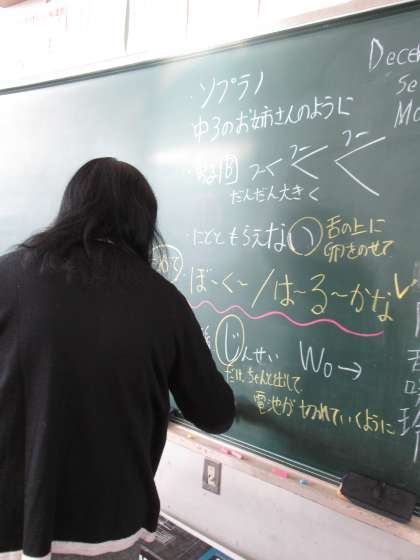 ・ソプラノ
中3のお姉さんのように
B つーく フー く フー く
だんだん大きく
・にどともらえない 舌の上に
卵をのせて
・ぼ〜く〜/は〜る〜かな
じんせい Wo→
だけ、ちゃんと出して、
電池が切れていくように